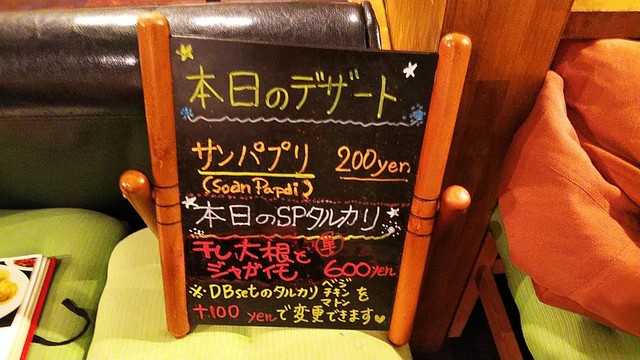 本日のデザート
サンパプリ 200yen
(Soan Papdi)
本日のSPタルカリ
干し大根と 単
ジャガイモ 600yen
※DBsetのタルカリ ベジ チキン マトン を
+100 yenで変更できます